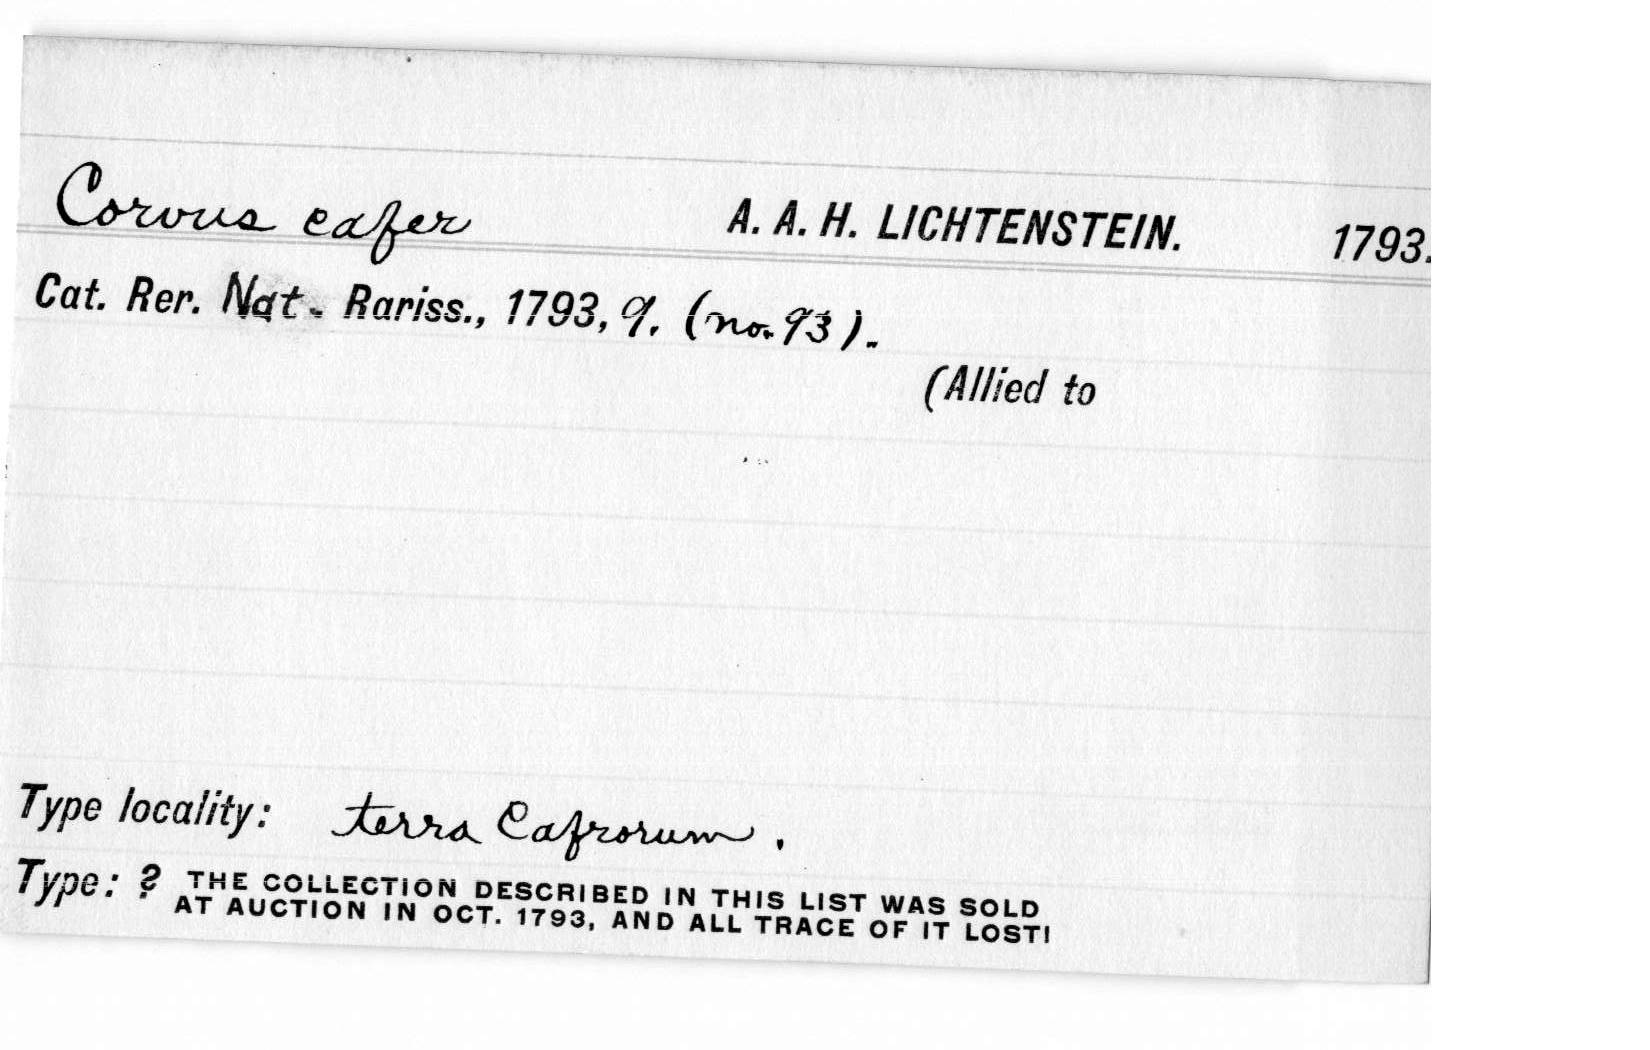 Corvus cafer A. A. H. LICHTENSTEIN. 1793.
Cat. Rer. Nat. Rariss., 1793, 9. (no. 93).
(Allied to
Type locality: terra Cafrorum.
Type: ? THE COLLECTION DESCRIBED IN THIS LIST WAS SOLD
AT AUCTION IN OCT. 1793, AND ALL TRACE OF IT LOST!